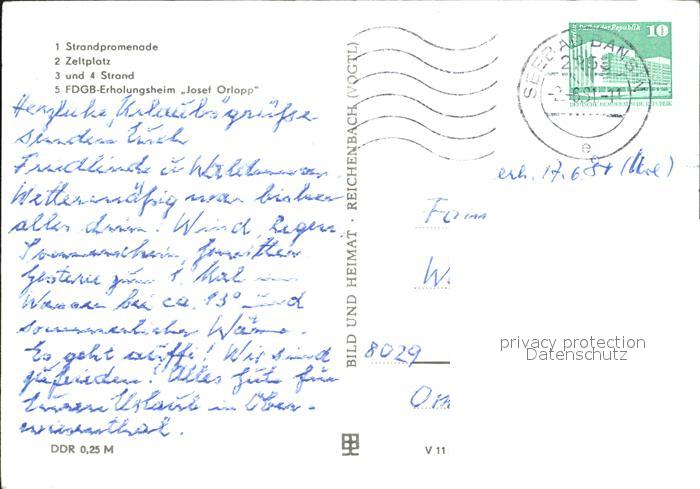 1 Strandpromenade
2 Zeltplatz
3 und 4 Strand
5 FDGB-Erholungsheim „Josef Orlopp"
Herzliche Urlaubsgrüße
senden Euch
Friedlinde u. Waldemar.
Wettermäßig war bisher
alles drin: Wind, Regen,
Sonnenschein, Gewitter
Gestern zum 1. Mal im
Wasser bei ca. 13° und
sommerlicher Wärme.
Es geht aufi! Wir sind
zufrieden! Alles Gute für
Euren Urlaub in Ober-
wiesenthal.
DDR 0,25 M
BILD UND HEIMAT · REICHENBACH (VOGTL)
V 11
10
Palast der Republik
DEUTSCHE DEMOKRATISCHE REPUBLIK
SEEBAD BANSIN
2255
e
erh. 17.6.81
Fam
W
8029
privacy protection
Datenschutz